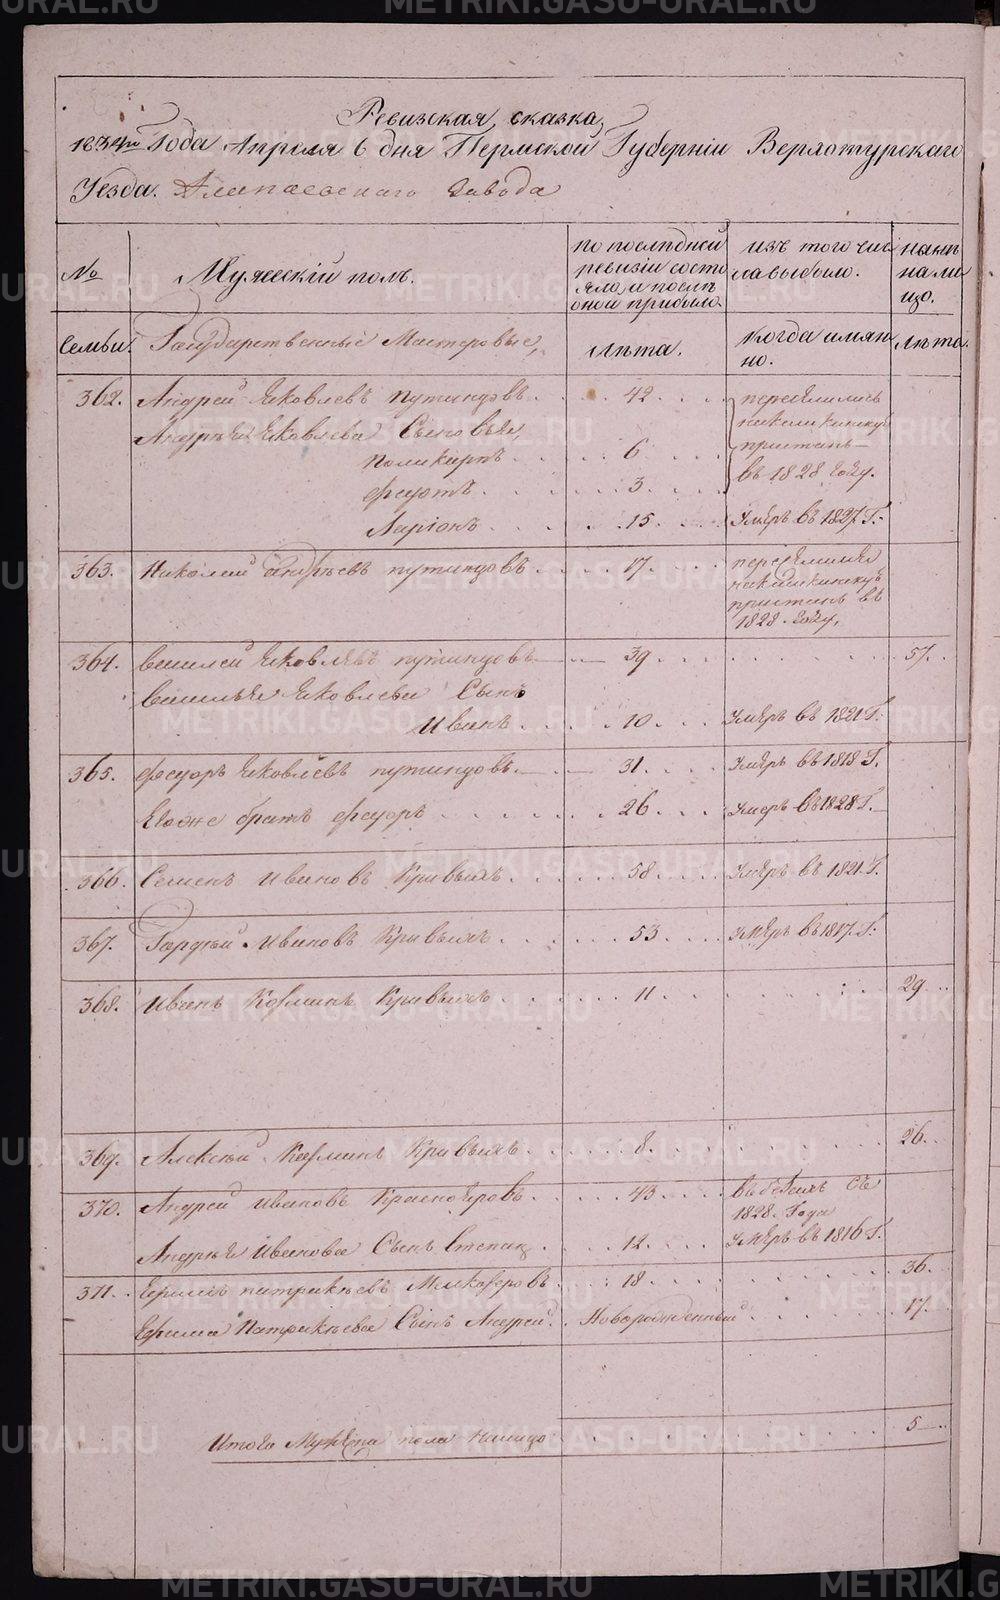 Ревизская сказка,
1834го Года Апреля 6 дня Пермской Губернiи Верхотурскаго
Уезда. Алапаевскаго Завода
№
Мужескiй полъ.
по последней
ревизiи состо
яло, и послѣ
оной прибыло.
изъ того чис
ла выбыло.
нынѣ
на ли
цо.
Семьи.
Государственные Мастеровые,
лѣта.
когда имян
но.
лѣта.
362. Андрей Яковлевъ Путинцовъ 42
Андрея Яковлева Сыновья,
Поликарпъ 6
Федотъ 3
переселились
пристань
въ 1828 году.
Ларiонъ 15 Умеръ въ 1827 Г.
363. Николай Андреевъ Путинцовъ 17 переселился
пристань въ
1828 году,
364. Василей Яковлевъ Путинцовъ 39 57
Василья Яковлева Сынъ
Иванъ 10 Умеръ въ 1821 Г.
365. Федоръ Яковлевъ Путинцовъ 31 Умеръ въ 1818 Г.
Егоже братъ Федоръ 26 Умеръ въ 1828 Г.
366. Семенъ Ивановъ Кривыхъ 58 Умеръ въ 1821 Г.
367. Гордей Ивановъ Кривыхъ 53 Умеръ въ 1817 Г.
368. Иванъ Козминъ Кривыхъ 11 29
369. Алексей Козминъ Кривыхъ 8 26
370. Андрей Ивановъ Красноперовъ 43 въ бегахъ съ
1828 Года
Андрея Иванова Сынъ Степан 12 Умеръ въ 1816 Г.
371. Ефимъ Патрикеевъ 18 36
Ефима Патрикеева Сынъ Андрей Новорожденный 17
Итого Мужеска пола налицо 5
METRIKI.GASO-URAL.RU